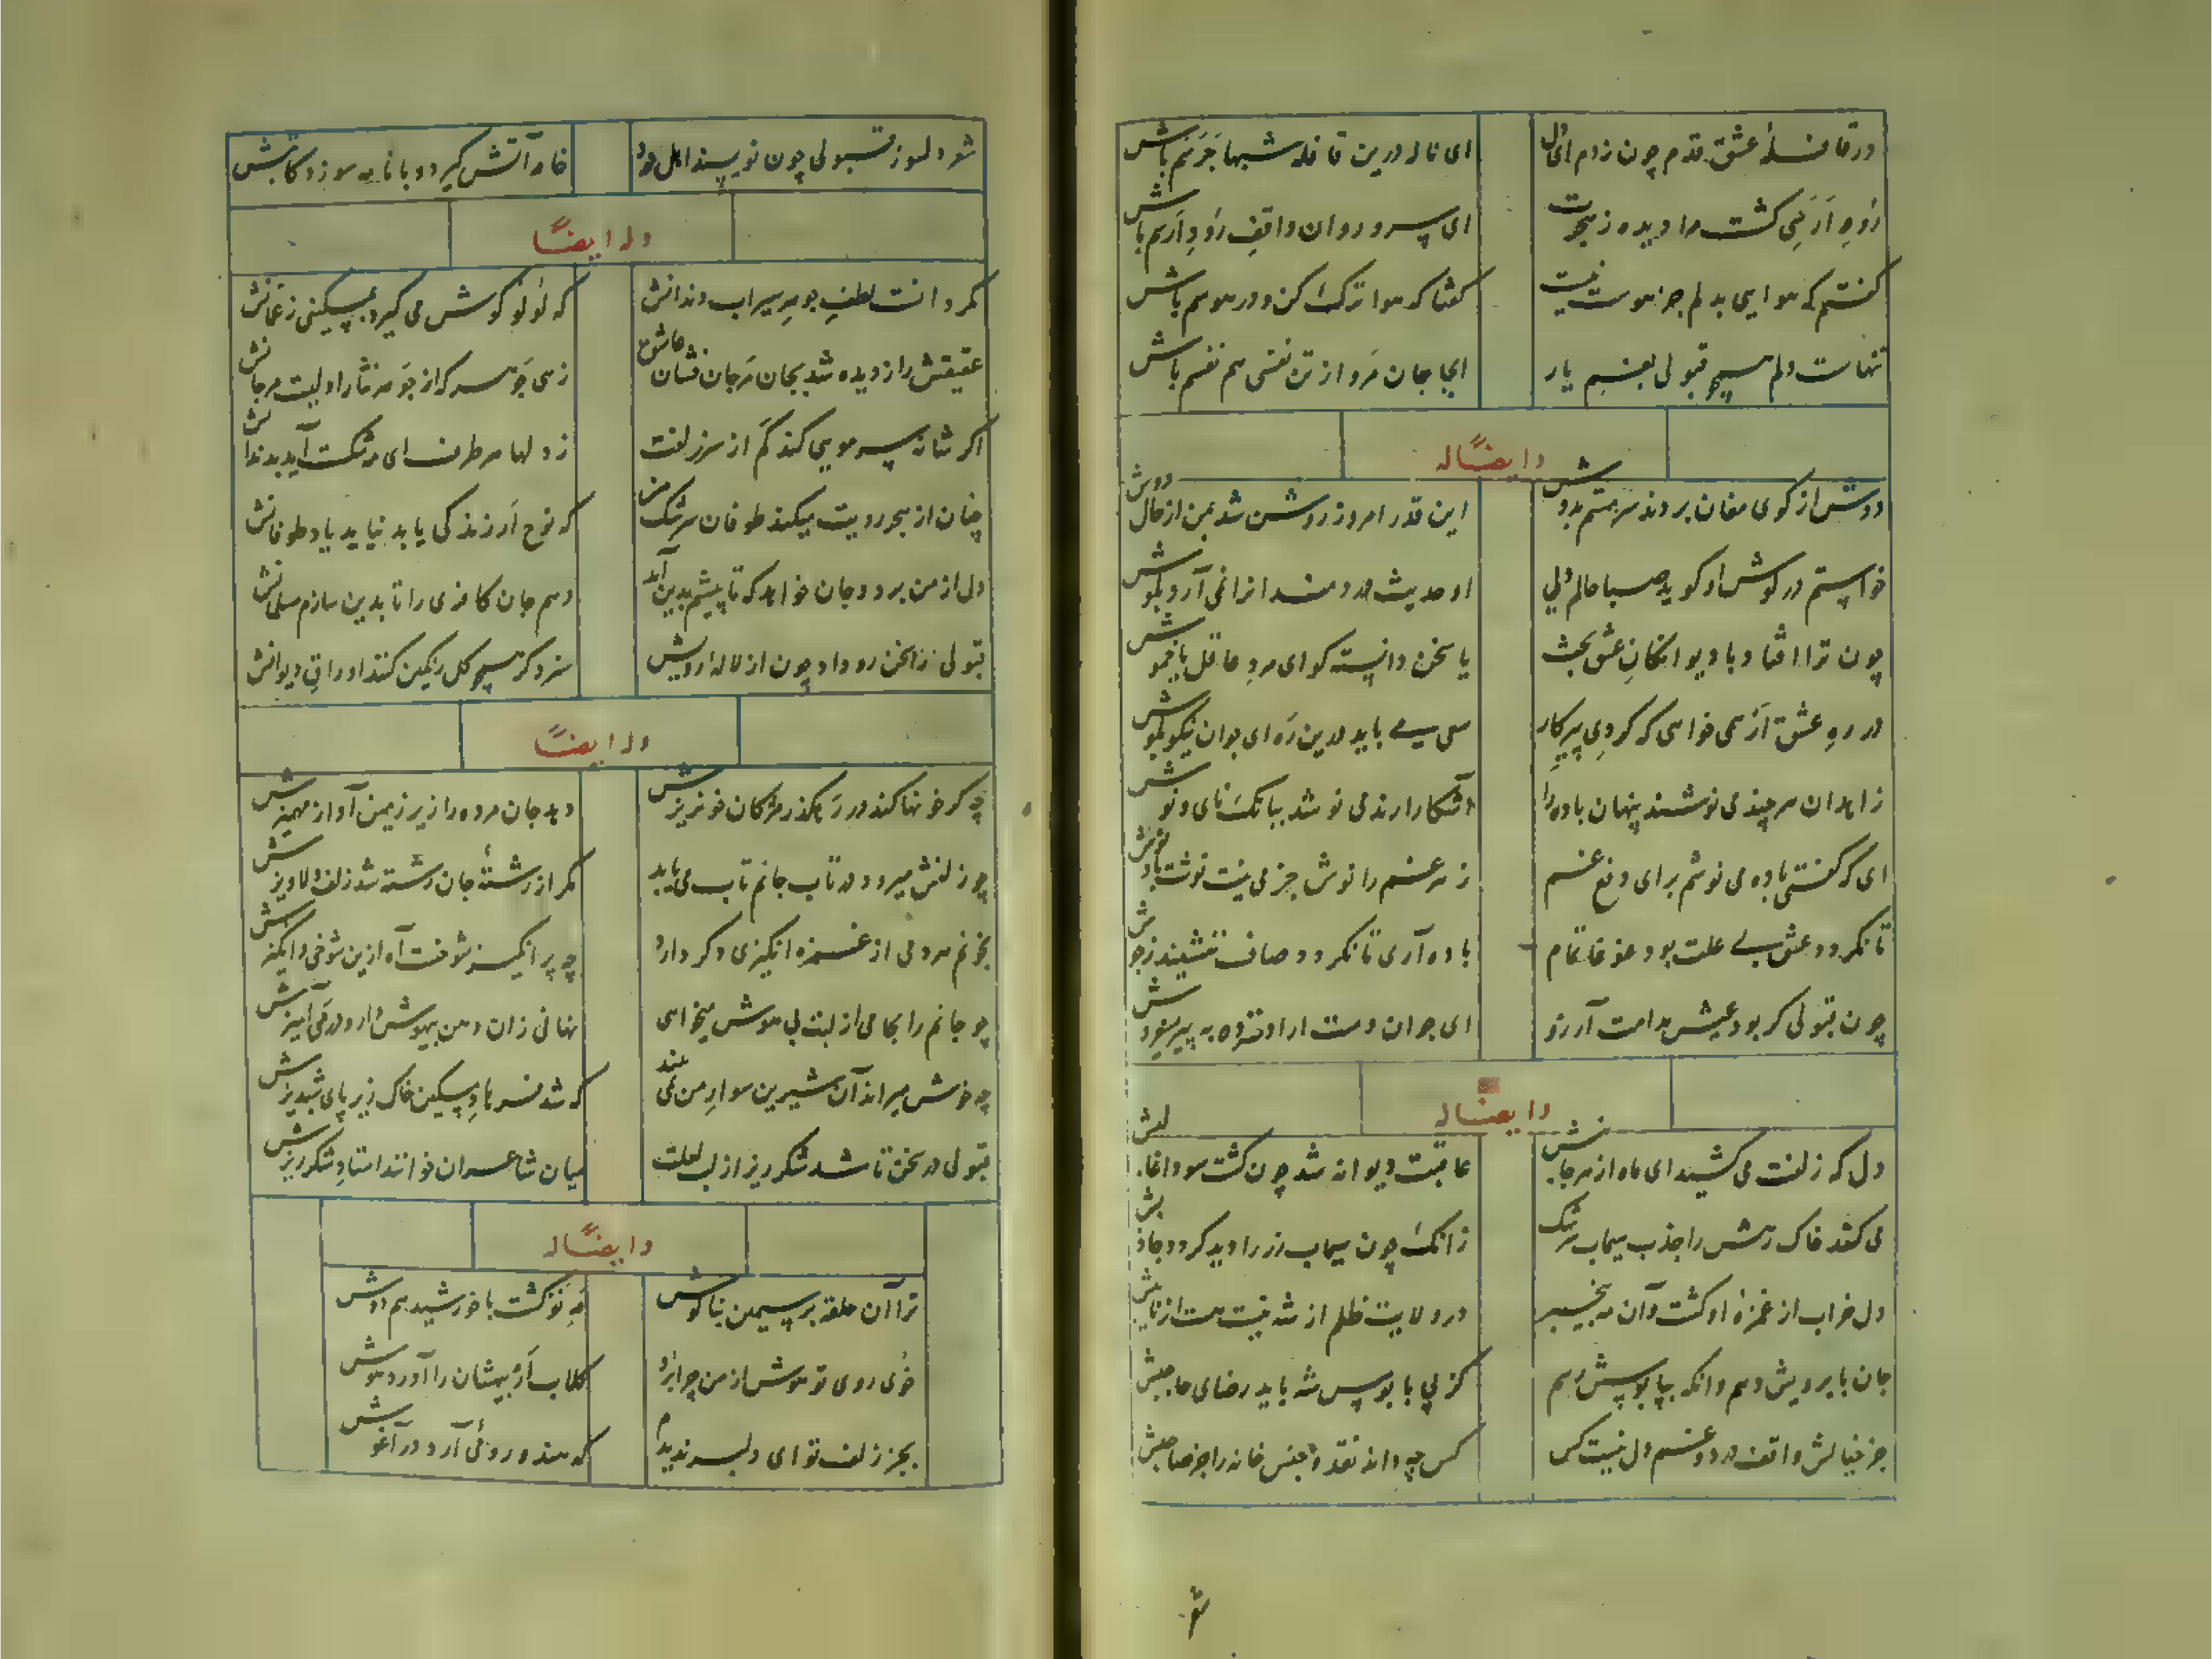 در قافلهٔ عشق قدم چون زدم ای دل ای ناله درین قافله شبها جرسم باش
رود ارسی گشت مرا دیده ز هجرت ای سرو روان واقف رود ارسم باش
گفتم که هوایی بدلم جز هوست نیست گفتا که هوا ترک کن و در هوسم باش
تنهاست دلم همچو قبولی بغم یار ای جان مرو از تن نفسی هم نفسم باش
وایضًا له
دوش از کوی مغان بردند سرمستم بدوش این قدر امروز روشن شد بمن از حال دوش
خواستم در گوش او گوید صبا حالم ولی او حدیث دردمندانرا نمی آرد بگوش
چون ترا افتاد با دیوانگان عشق بحث یا سخن دانسته گو ای مرد عاقل یا خموش
در ره عشق ار همی خواهی که گردی پیر کار سعی می باید درین ره ای جوان نیکو بکوش
زاهدان هر چند می نوشند پنهان باده را آشکارا رند می نوشد ببانگ نای و نوش
ای که گفتی باده می نوشم برای دفع غم زهر غم را نوش جز می نیست نوشت باد نوش
تا نگردد عشق بی علت بود غوغا تمام باده آری تا نگردد صاف ننشیند ز جوش
چون قبولی گر بود عیش مدامت آرزو ای جوان دست ارادت ده به پیر میفروش
وایضًا له
دل که زلفت می کشید ای ماه از هر جانبش عاقبت دیوانه شد چون گشت سودا غالبش
می کشد خاک رهش را جذب سیماب سرشک زانک چون سیماب زر را دید گردد جاذبش
دل خراب از غمزهٔ او گشت و آن مه بیخبر در ولایت ظلم از شه نیست هست از نایبش
جان بابرویش دهم وانگه بپابوسش رسم کز پی پابوس شه باید رضای حاجبش
جز خیالش واقف درد و غم دل نیست کس کس چه داند نقد و جنس خانه را جز صاحبش
شو
شود لسوز قبولی چون نویسند اهل درد خامه آتش گیرد و با نامه سوزد کاتبش
وله ایضًا
مگر دانست لطف جوهر سیراب دندانش که لؤلؤ گوش می گیرد بمسکینی ز عمانش
عقیقش را ز دیده شد بجان مرجان فشان عاشق زهی جوهر که از جوهر نثار اولیست مرجانش
اگر شانه سر مویی کند کم از سر زلفت ز دلها هر طرف ای مه شکست آید بدندانش
چنان از بحر رویت میکند طوفان سرشک من که نوح ار زندگی یابد نیاید یاد طوفانش
دل از من برد و جان خواهد که تا پیشم بدین آید دهم جان کافری را تا بدین سازم مسلمانش
قبولی زان سخن رو داد چون از لاله رویش سزد گر همچو گل رنگین کنند اوراق دیوانش
وله ایضًا
چه گر خونها کند در رهگذر مژگان خونریزش دهد جان مرده را زیر زمین آواز مهمیزش
چو زلفش میرود در تاب جانم تاب می یابد مگر از رشتهٔ جان رشته شد زلف دلاویزش
بخونم هر دمی از غمزه انگیزی دگر دارد چه پر انگیز شوخست آه ازین شوخی و انگیزش
چو جانم را بجامی از لبت بی هوش میخواهی نهانی زان دهن بیهوش دارو در می آمیزش
چه خوش میراند آن شیرین سوار من سمند که شد فرهاد مسکین خاک زیر پای شبدیزش
قبولی در سخن تا شد شکرریز از لب لعلت میان شاعران خوانند استاد شکرریزش
وایضًا له
ترا آن حلقه بر سیمین بناگوش مه نو گشت با خورشید هم دوش
خوی روی تو هوش از من چرا برد گلاب ار بیهشان را آورد هوش
بجز زلف تو ای دلبر ندیدم که هندو رومئی آرد در آغوش